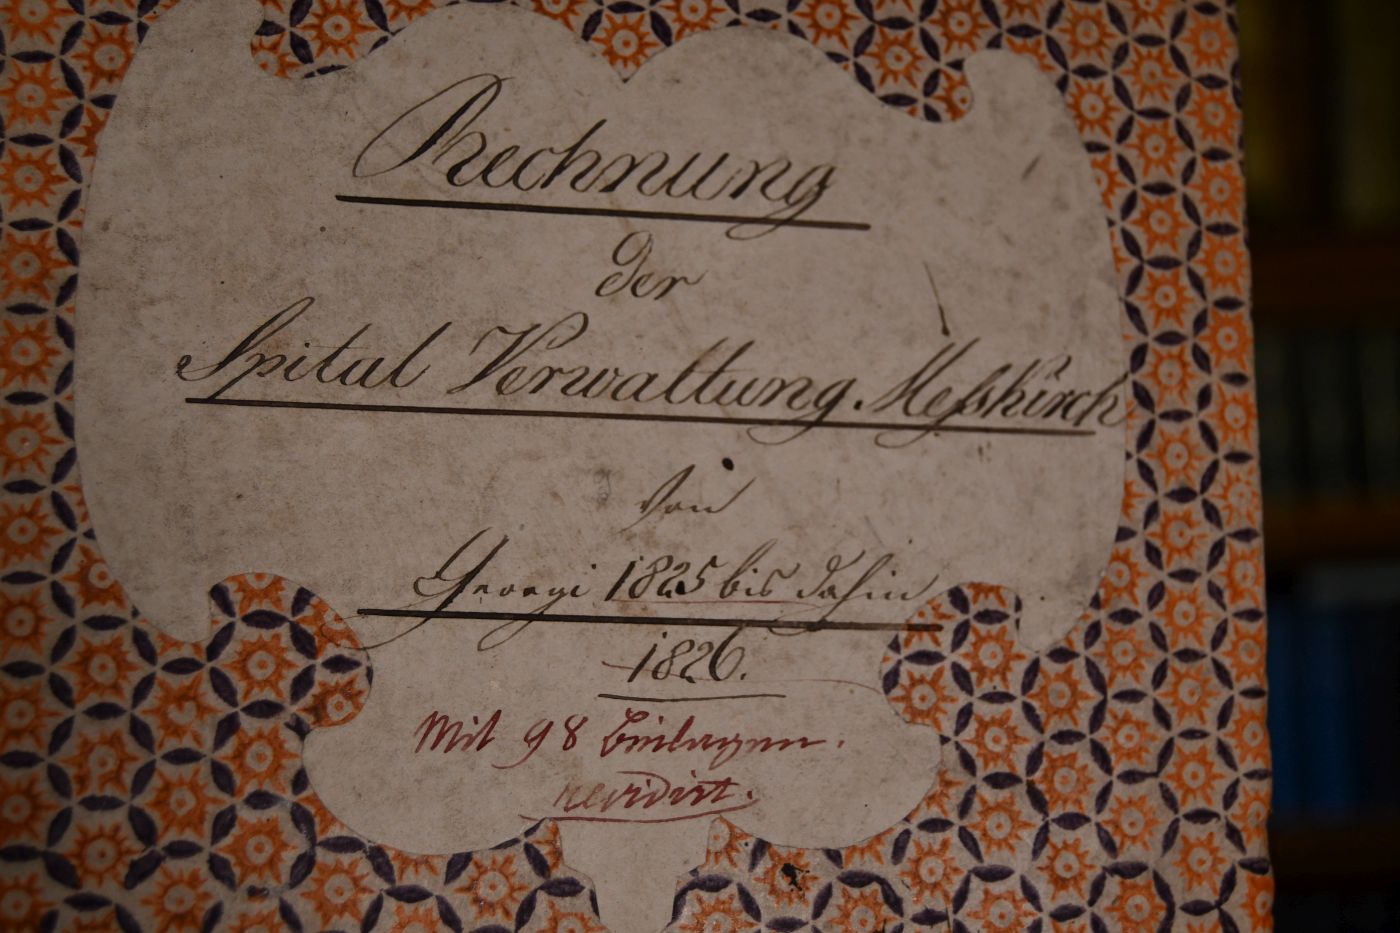 Rechnung
der
Spital Verwaltung Meßkirch
von
Georgi 1825 bis dahin
1826.
Mit 98 Beilagen.
revidirt.